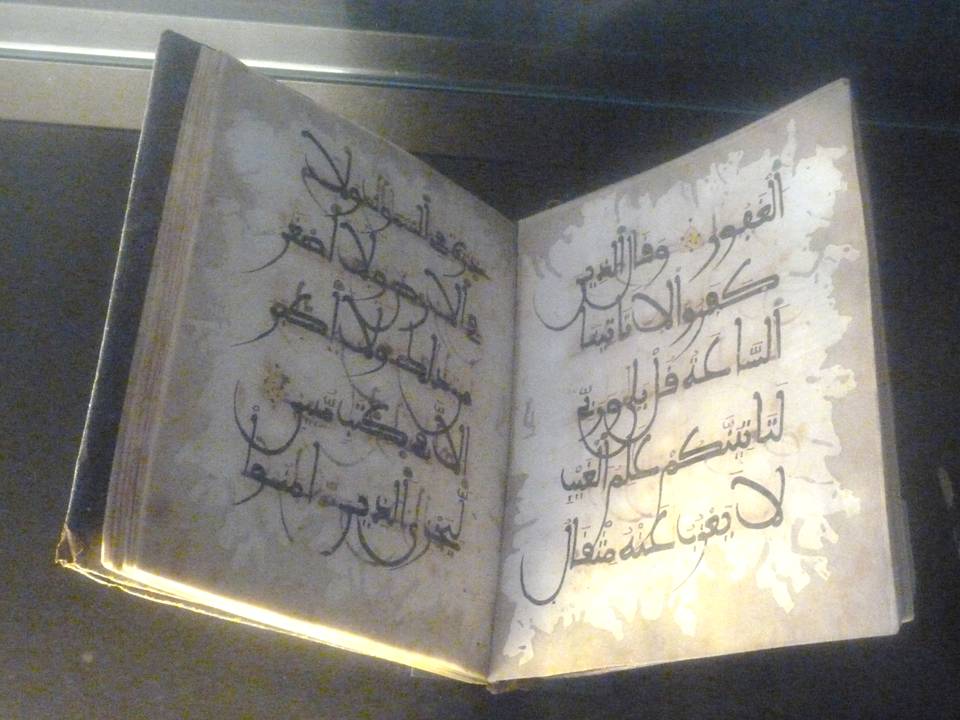 ٱلْغَفُورُ وَقَالَ ٱلذِينَ
كَفَرُوا لَا تَاتِينَا
ٱلسَّاعَةُ قُلْ بَلَى وَرَبِّي
لَتَاتِيَنَّكُمْ عَلِمِ ٱلْغَيْبِ
لَا يَعْزُبُ عَنْهُ مِثْقَالُ
ذرة في السموات ولا
في الارض ولا أصغر
من ذلك ولا أكبر
الا في كتب مبين
ليجزي الذين امنوا